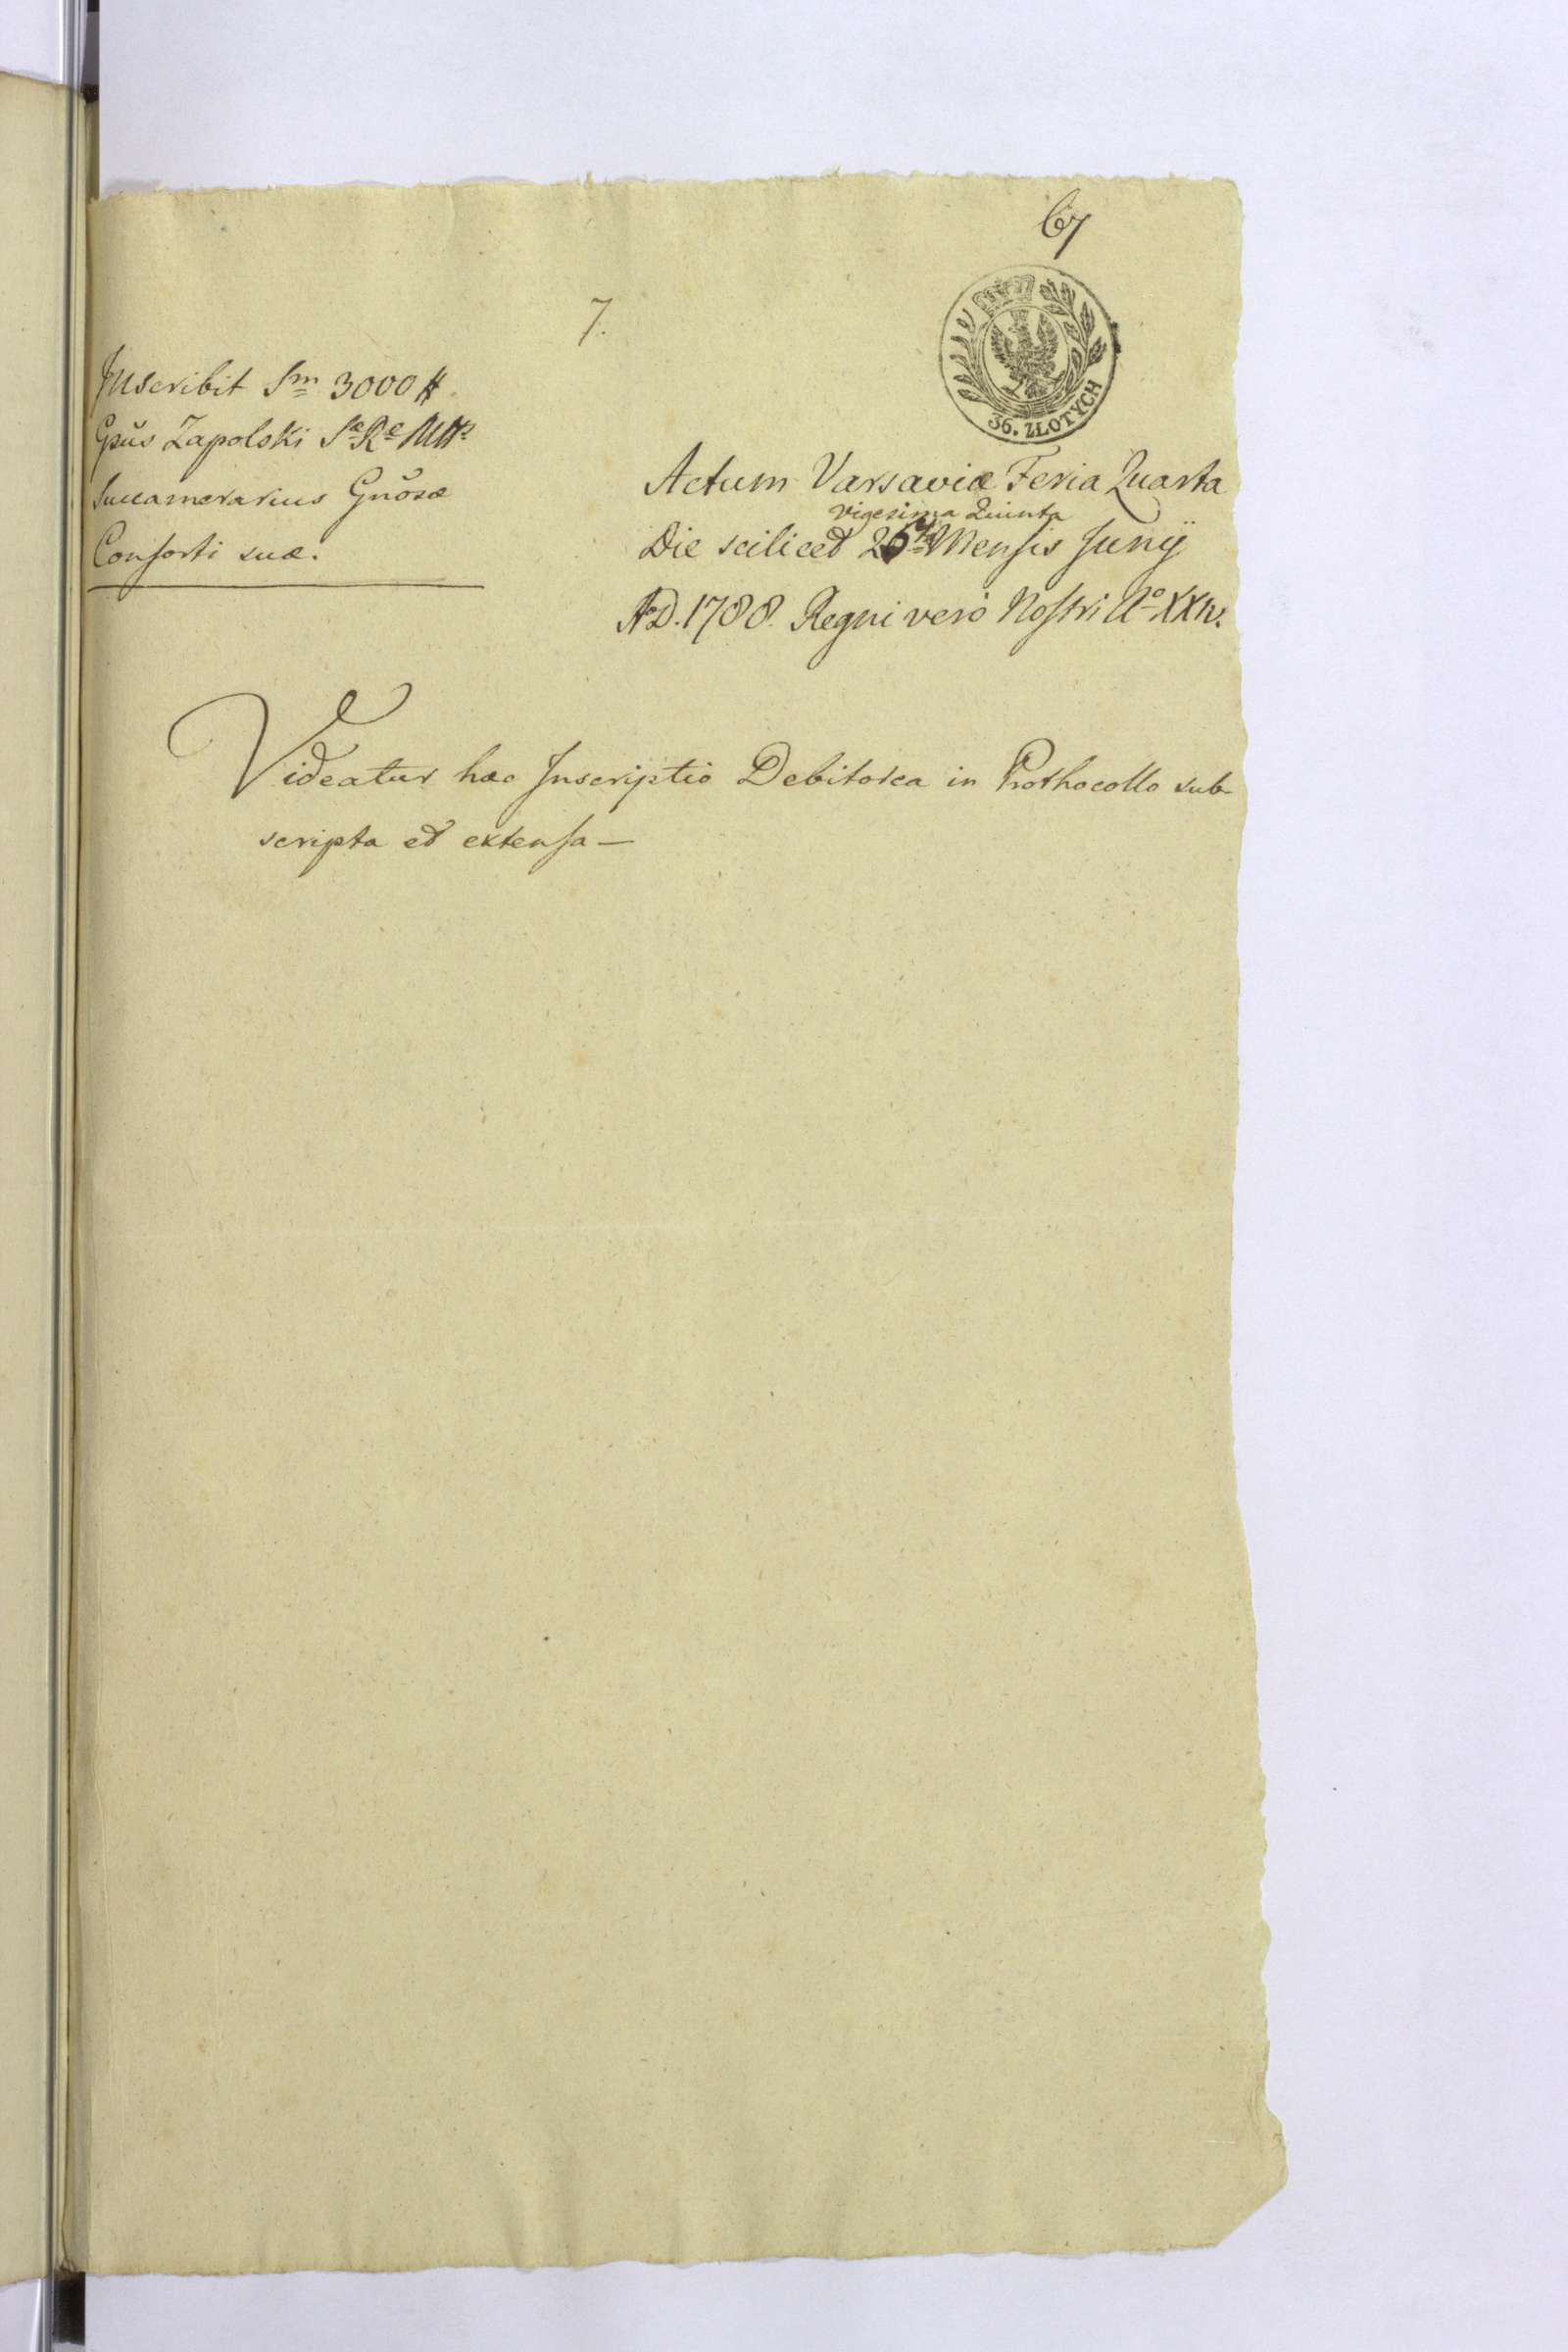 67
7.
36. ZŁOTYCH
Inscribit Sm 3000 #
Gsus Zapolski Sae Rae Mttis
Succamerarius Gnosæ
Consorti suæ.
Actum Varsaviæ Feria Quarta
vigesima Quinta
Die scilicet 25ta Mensis Junÿ
AD. 1788. Regni verò Nostri Ao XXIV.
Videatur hæc Inscriptio Debitorea in Prothocollo sub-
scripta et extensa —